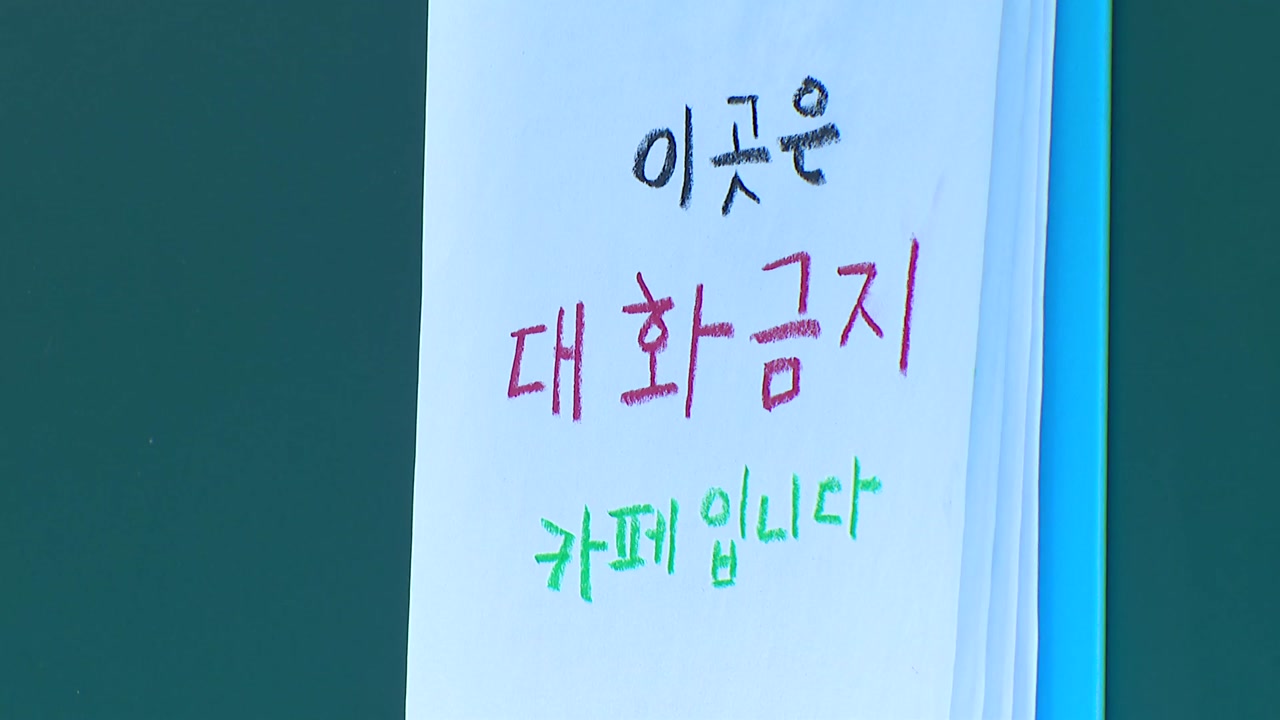 이곳은
대화금지
카페입니다